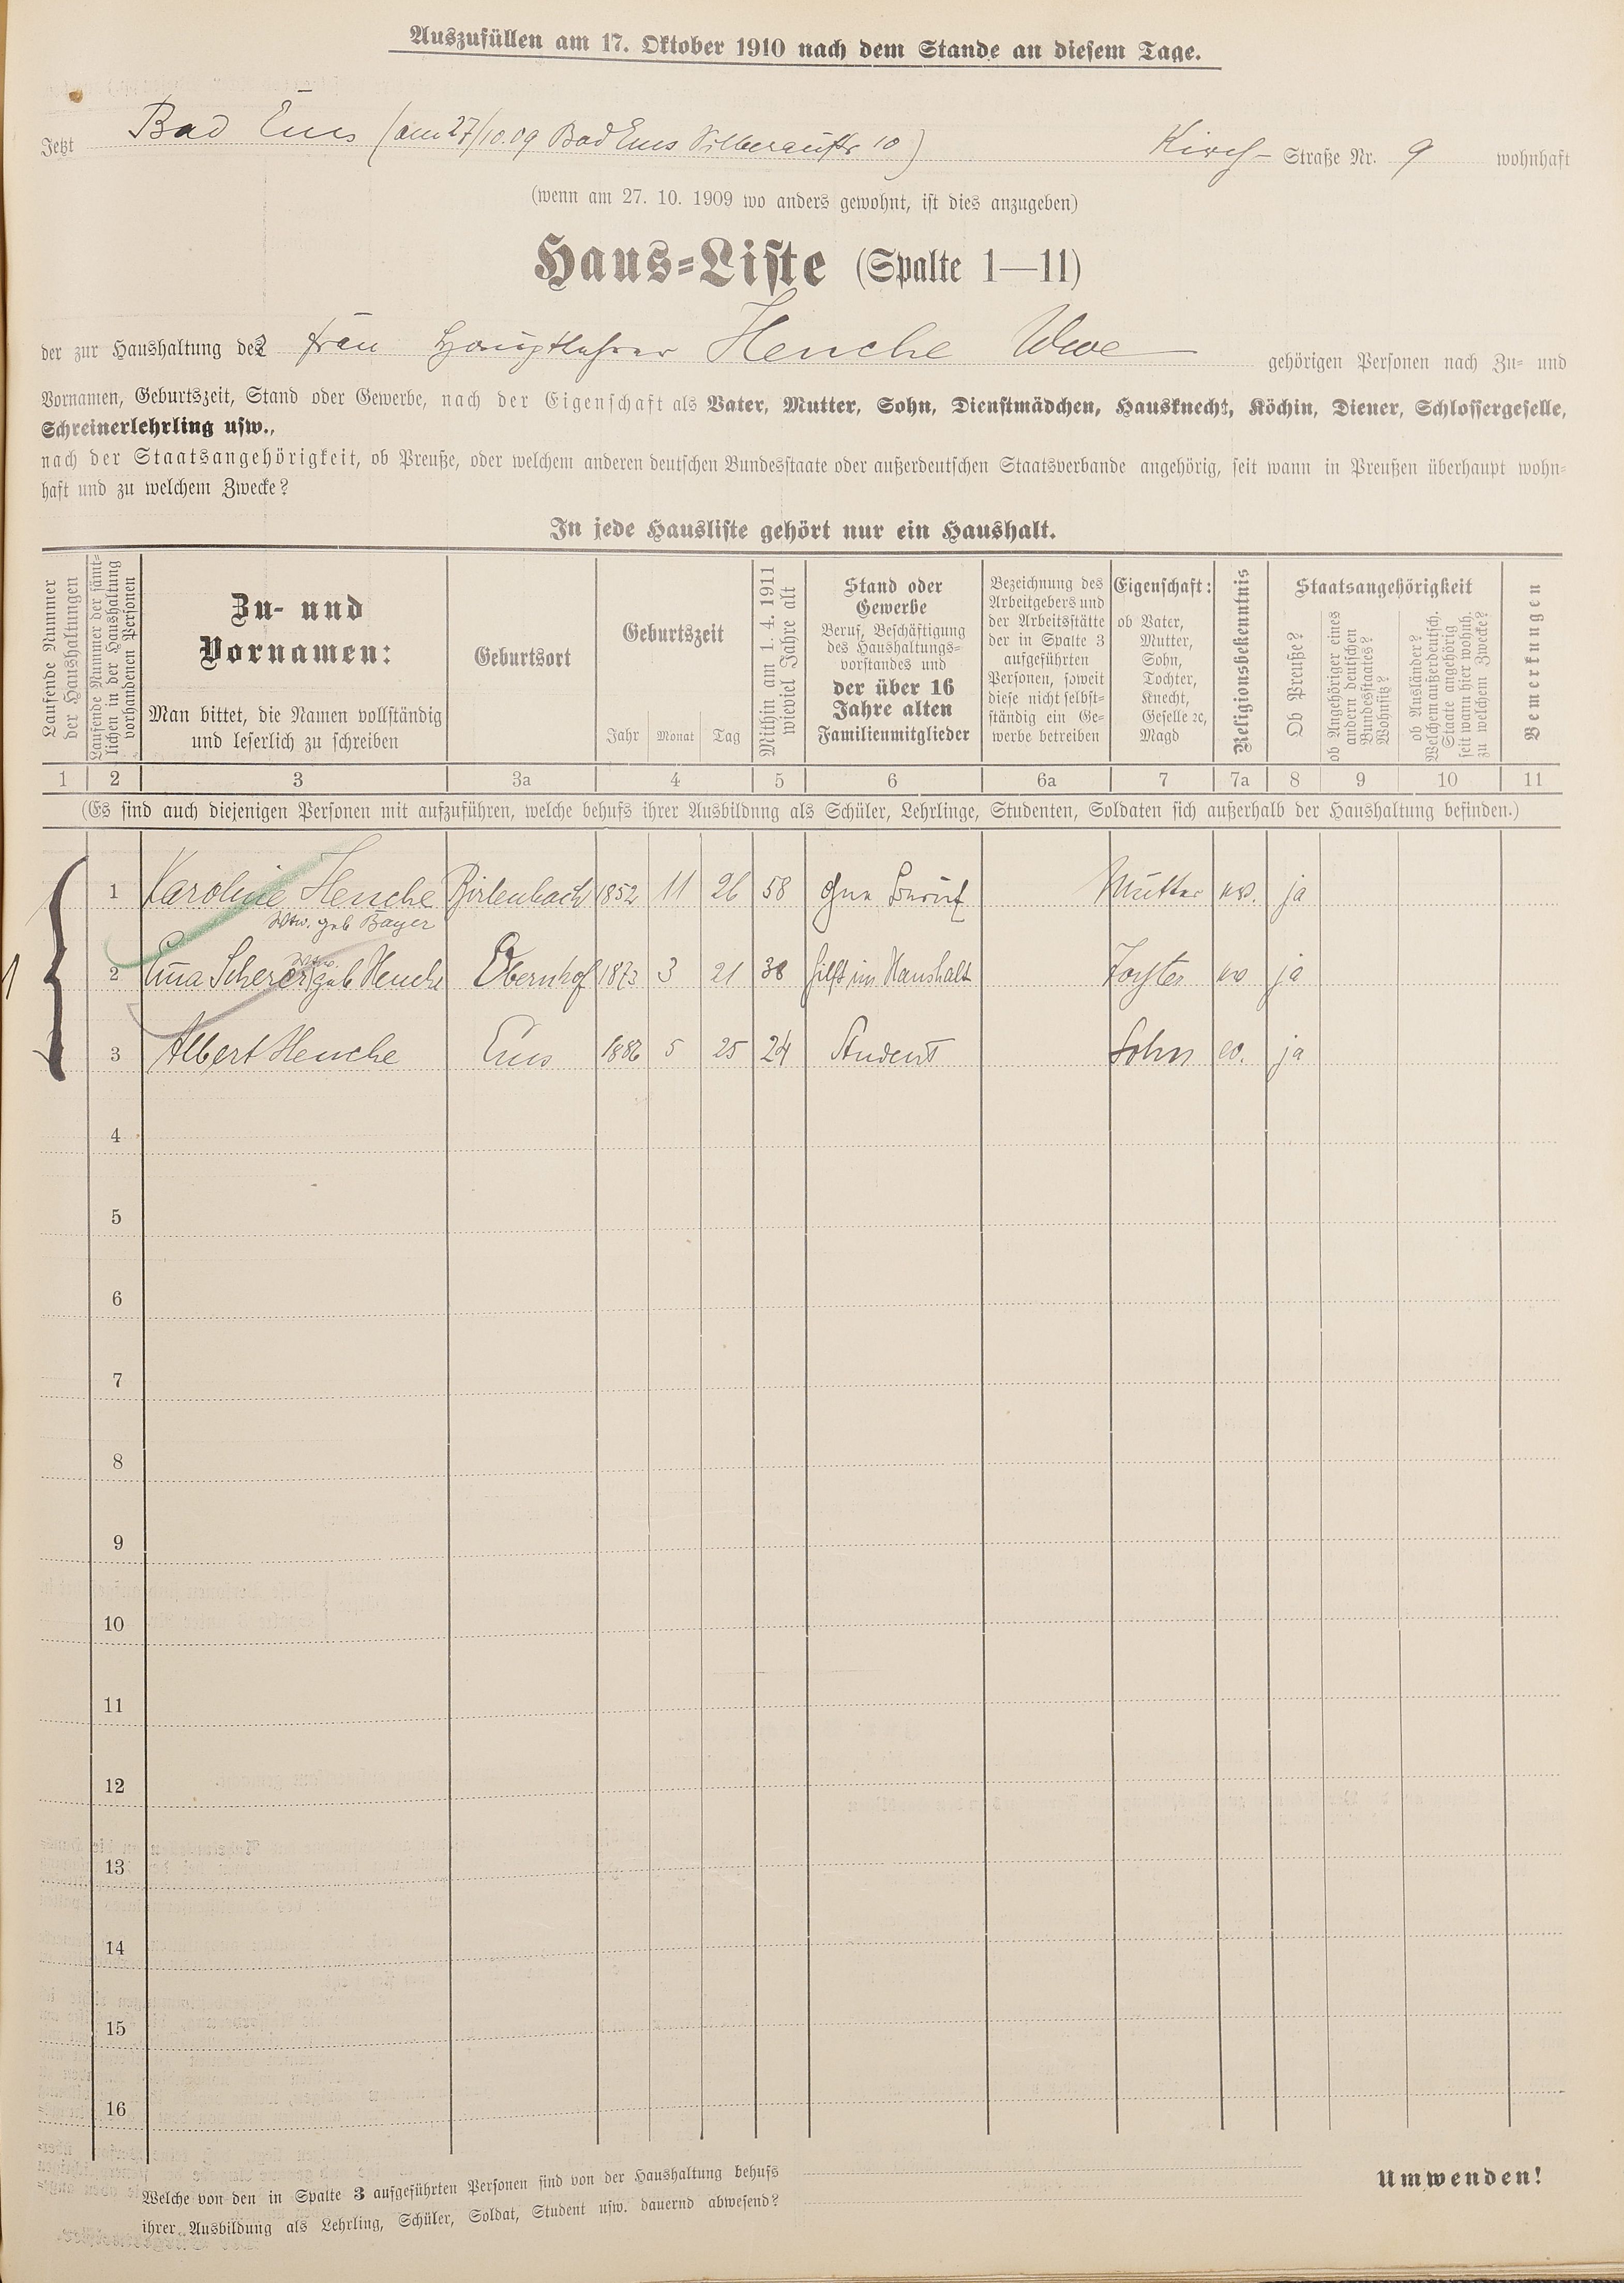 Auszufüllen am 17. Oktober 1910 nach dem Stande an diesem Tage.
Jetzt Bad Ems (am 27/10.09 Bad Ems Silberaustr 10) Kirch- Straße Nr. 9 wohnhaft
(wenn am 27. 10. 1909 wo anders gewohnt, ist dies anzugeben)
Haus-Liste (Spalte 1—11)
der zur Haushaltung der Frau Hauptlehrer Henche Wwe gehörigen Personen nach Zu- und
Vornamen, Geburtszeit, Stand oder Gewerbe, nach der Eigenschaft als Vater, Mutter, Sohn, Dienstmädchen, Hausknecht, Köchin, Diener, Schlossergeselle,
Schreinerlehrling usw.,
nach der Staatsangehörigkeit, ob Preuße, oder welchem anderen deutschen Bundesstaate oder außerdeutschen Staatsverbande angehörig, seit wann in Preußen überhaupt wohn-
haft und zu welchem Zwecke?
In jede Hausliste gehört nur ein Haushalt.
Laufende Nummer
der Haushaltungen
Laufende Nummer der sämt-
lichen in der Haushaltung
vorhandenen Personen
Zu- und
Vornamen:
Man bittet, die Namen vollständig
und leserlich zu schreiben
Geburtsort
Geburtszeit
Jahr Monat Tag
Mithin am 1. 4. 1911
wieviel Jahre alt
Stand oder
Gewerbe
Beruf, Beschäftigung
des Haushaltungs-
vorstandes und
der über 16
Jahre alten
Familienmitglieder
Bezeichnung des
Arbeitgebers und
der Arbeitsstätte
der in Spalte 3
aufgeführten
Personen, soweit
diese nicht selbst-
ständig ein Ge-
werbe betreiben
Eigenschaft:
ob Vater,
Mutter,
Sohn,
Tochter,
Knecht,
Geselle ꝛc,
Magd
Religionsbekenntnis
Staatsangehörigkeit
Ob Preuße?
ob Angehöriger eines
andern deutschen
Bundesstaates?
Wohnsitz?
ob Ausländer?
Welchem außerdeutsch.
Staate angehörig
seit wann hier wohnh.
zu welchem Zwecke?
Bemerkungen
1 2 3 3a 4 5 6 6a 7 7a 8 9 10 11
(Es sind auch diejenigen Personen mit aufzuführen, welche behufs ihrer Ausbildung als Schüler, Lehrlinge, Studenten, Soldaten sich außerhalb der Haushaltung befinden.)
1 Karoline Henche Birlenbach 1852 11 26 58 ohne Beruf Mutter ev. ja
Wtw. geb Bayer
Wtw.
1 2 Scherer geb Henche Obernhof 1873 3 21 38 hilft im Haushalt Tochter ev ja
3 Albert Henche Ems 1886 5 25 24 Student Sohn ev. ja
4
5
6
7
8
9
10
11
12
13
14
15
16
Welche von den in Spalte 3 aufgeführten Personen sind von der Haushaltung behufs
ihrer Ausbildung als Lehrling, Schüler, Soldat, Student usw. dauernd abwesend?
Umwenden!